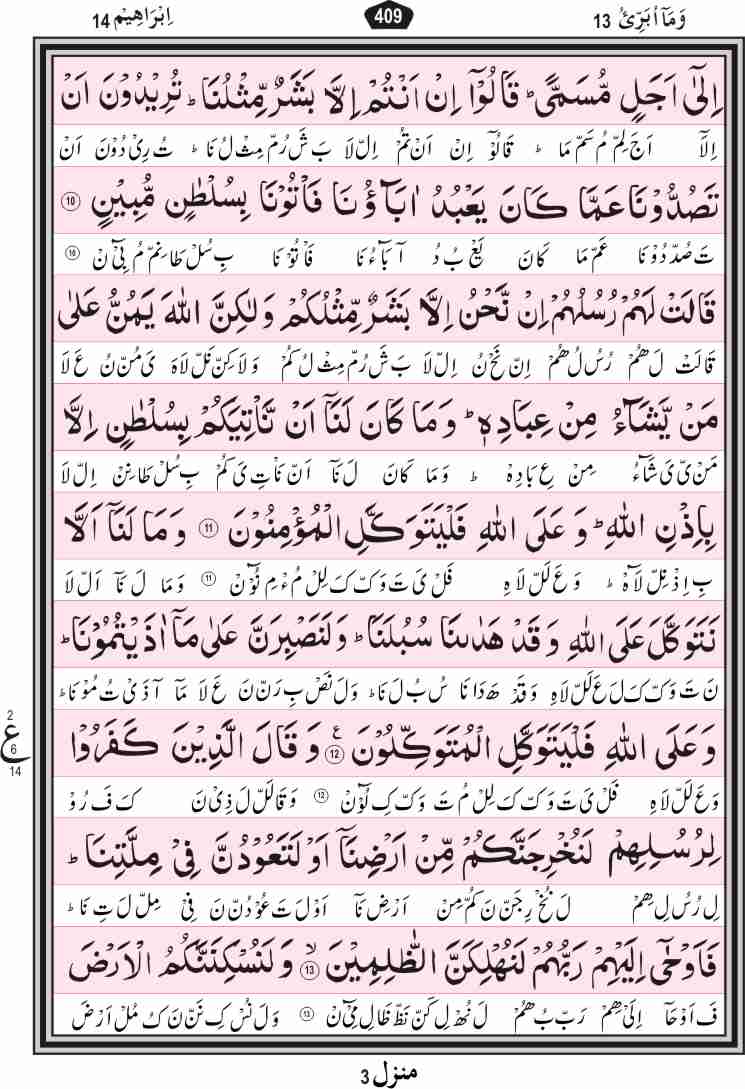 اِبْرَاهِيْم 14 409 وَمَآ اُبَرِّئُ 13
اِلٰٓى اَجَلٍ مُّسَمًّى ؕ قَالُوْٓا اِنْ اَنْتُمْ اِلَّا بَشَرٌ مِّثْلُنَا ؕ تُرِيْدُوْنَ اَنْ
اِلَآ اَجَ لِمّ مُ سَمّ مَا ؕ قَالُوْٓ اِنْ اَنْ تُمْ اِلّ لَا بَ شَ رُمّ مِثْ لُ نَا ؕ تُ رِىْ دُوْنَ اَنْ
تَصُدُّوْنَا عَمَّا كَانَ يَعْبُدُ اٰبَآؤُنَا فَاْتُوْنَا بِسُلْطٰنٍ مُّبِيْنٍ ۝10
تَ صُدّ دُوْ نَا عَمّ مَا كَانَ يَعْ بُ دُ آ بَآءُ نَا فَاْ تُوْ نَا بِ سُلْ طَا نِمّ مُ بِىْٓ نْ ۝10
قَالَتْ لَهُمْ رُسُلُهُمْ اِنْ نَّحْنُ اِلَّا بَشَرٌ مِّثْلُكُمْ وَلٰكِنَّ اللّٰهَ يَمُنُّ عَلٰى
قَالَتْ لَ هُمْ رُ سُ لُ هُمْ اِنّ نَحْ نُ اِلّ لَا بَ شَ رُمّ مِثْ لُ كُمْ وَ لَا كِنّ نَلّ لَاهَ ىَ مُنّ نُ عَ لَا
مَنْ يَّشَآءُ مِنْ عِبَادِهٖ ؕ وَمَا كَانَ لَنَآ اَنْ نَّاْتِيَكُمْ بِسُلْطٰنٍ اِلَّا
مَنْ ىّ ىَ شَآءُ مِنْ عِ بَادِ هٖ ؕ وَ مَا كَانَ لَ نَآ اَنّ نَاْتِ ىَ كُمْ بِ سُلْ طَا نِنْ اِلّ لَا
بِاِذْنِ اللّٰهِ ؕ وَعَلَى اللّٰهِ فَلْيَتَوَكَّلِ الْمُؤْمِنُوْنَ ۝11 وَمَا لَنَآ اَلَّا
بِ اِذْ نِلّ لَاهْ ؕ وَ عَ لَلّ لَاهِ فَلْ ىَ تَ وَكّ كَ لِلْ مُءْ مِ نُوْٓ نْ ۝11 وَمَا لَ نَآ اَلّ لَا
نَتَوَكَّلَ عَلَى اللّٰهِ وَقَدْ هَدٰىنَا سُبُلَنَا ؕ وَلَنَصْبِرَنَّ عَلٰى مَآ اٰذَيْتُمُوْنَا ؕ
نَ تَ وَكّ كَ لَ عَ لَلّ لَاهِ وَ قَدْ هَ دَا نَا سُ بُ لَ نَا ؕ وَ لَ نَصْ بِ رَنّ نَ عَ لَا مَآ آ ذَىْ تُ مُوْ نَا ؕ
وَعَلَى اللّٰهِ فَلْيَتَوَكَّلِ الْمُتَوَكِّلُوْنَ ۝12 ع وَقَالَ الَّذِيْنَ كَفَرُوْا
وَ عَ لَلّ لَاهِ فَلْ ىَ تَ وَكّ كَ لِلْ مُ تَ وَكّ كِ لُوْٓ نْ ۝12 وَ قَا لَلّ لَ ذِىْ نَ كَ فَ رُوْ
2 ع 6 14
لِرُسُلِهِمْ لَنُخْرِجَنَّكُمْ مِّنْ اَرْضِنَآ اَوْ لَتَعُوْدُنَّ فِىْ مِلَّتِنَا ؕ
لِ رُ سُ لِ هِمْ لَ نُخْ رِ جَنّ نَ كُمّ مِنْ اَرْ ضِ نَآ اَوْ لَ تَ عُوْ دُنّ نَ فِىْ مِلّ لَ تِ نَا ؕ
فَاَوْحٰٓى اِلَيْهِمْ رَبُّهُمْ لَنُهْلِكَنَّ الظّٰلِمِيْنَ ۙ ۝13 وَلَنُسْكِنَنَّكُمُ الْاَرْضَ
فَ اَوْحَآ اِلَىْ هِمْ رَبّ بُ هُمْ لَ نُهْ لِ كَنّ نَظّ ظَا لِ مِىْٓ نْ ۝13 وَ لَ نُسْ كِ نَنّ نَ كُ مُلْ اَرْضَ
منزل 3